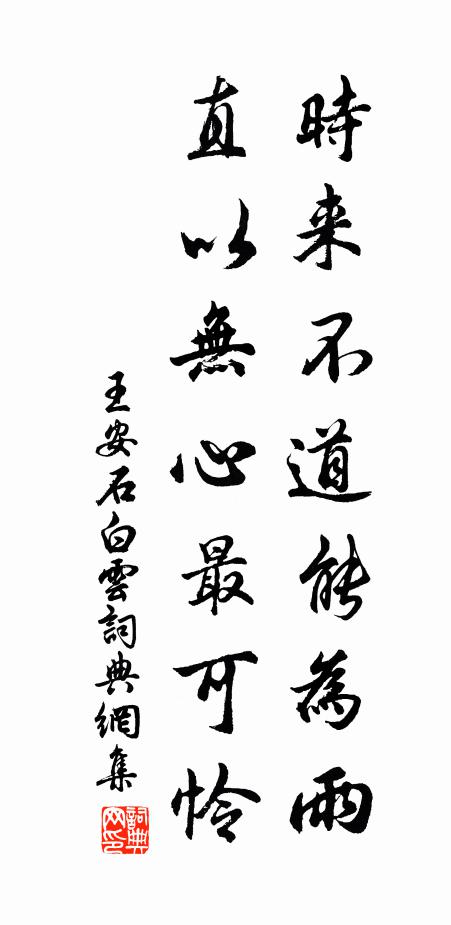 時来不道能為雨
直以無心最可怜
王安石白雲詞典網集
詞典網印